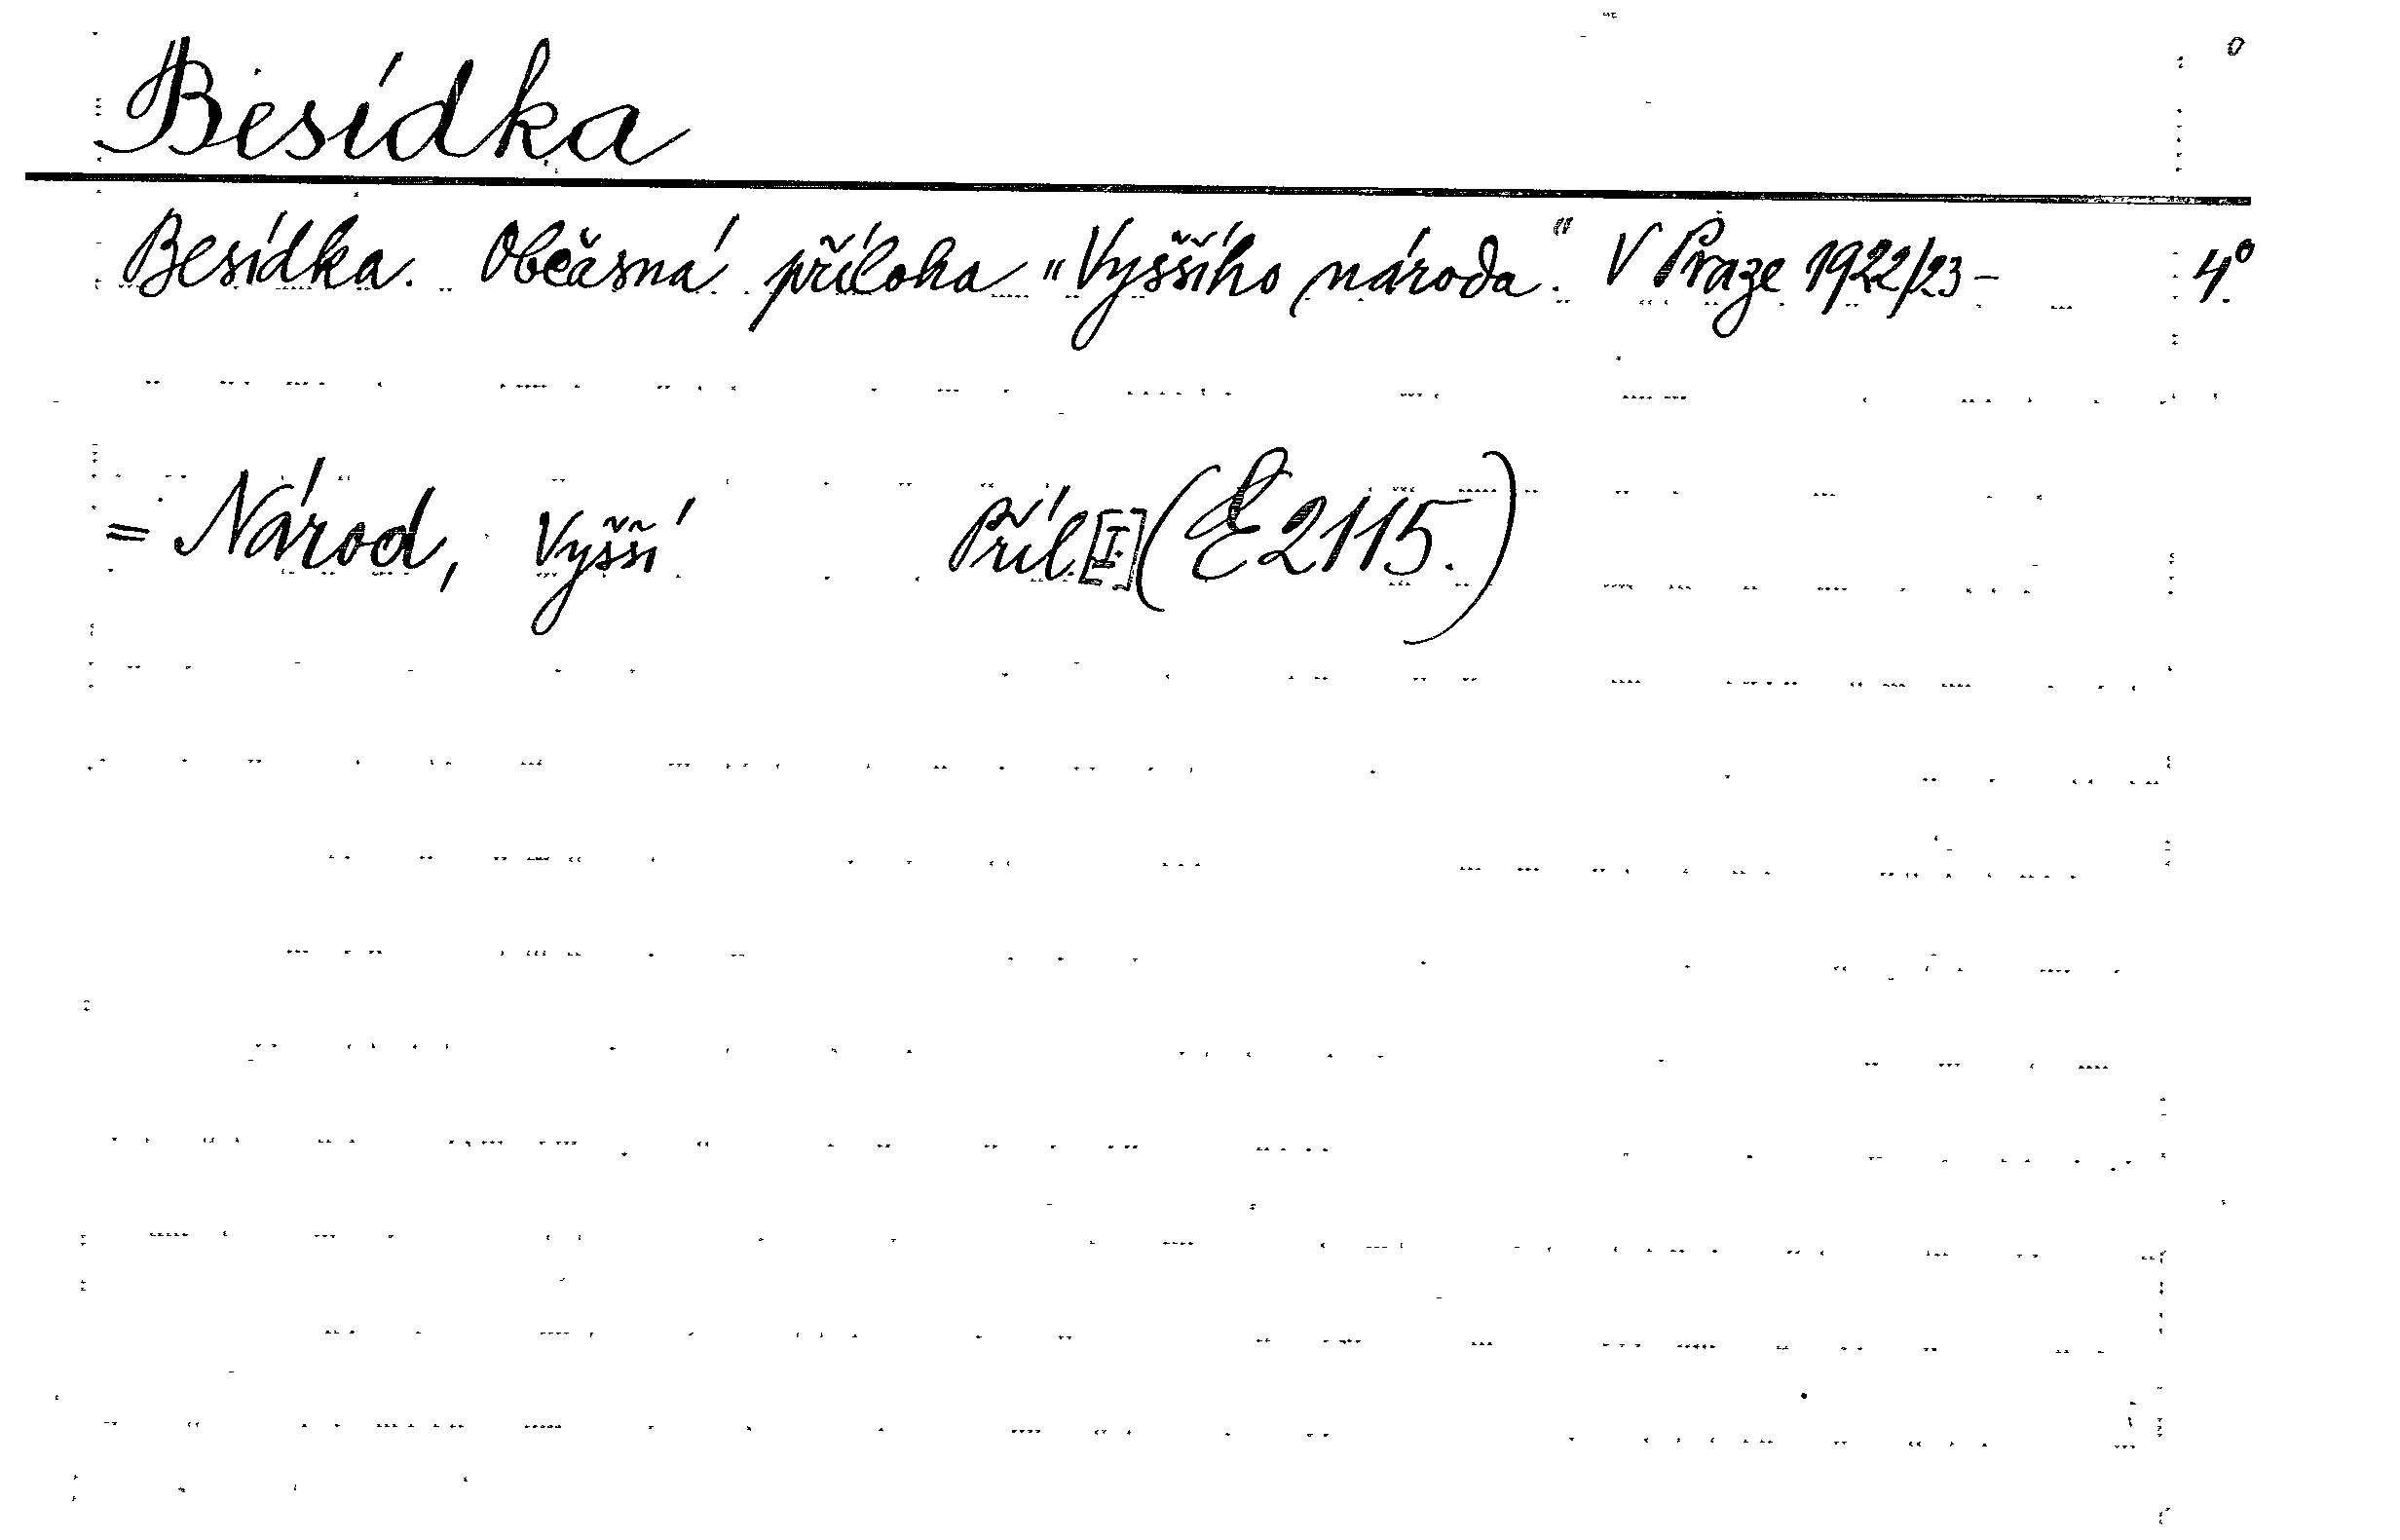 Besídka
Besídka. Občasná příloha „Vyššího národa“. V Praze 1922/23- 4°
= Národ, Vyšší Příl.[I.] (E 2115.)